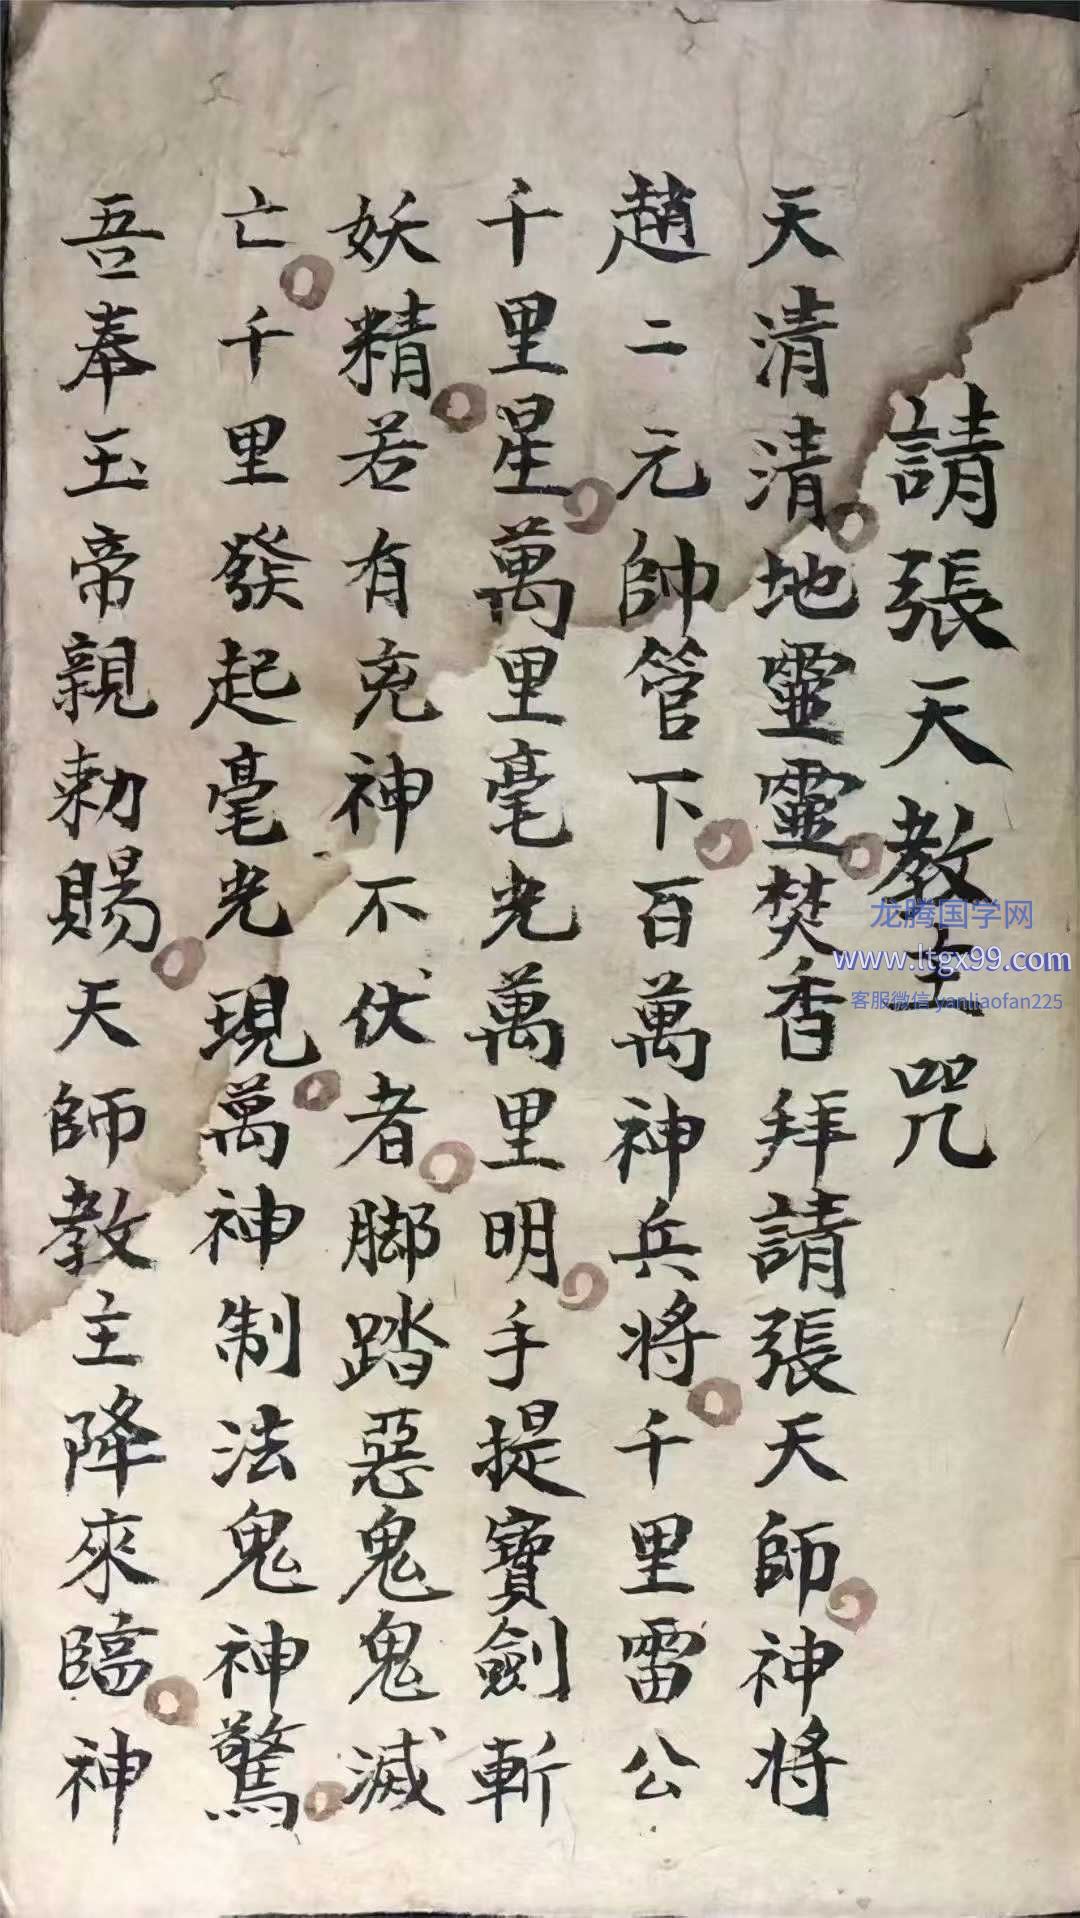 請張天教主咒
天清清地靈靈焚香拜請張天師神将
趙二元帥管下百萬神兵将千里雷公
千里星萬里毫光萬里明手提寶劍斬
妖精若有兇神不伏者脚踏惡鬼鬼滅
亡千里發起毫光現萬神制法鬼神驚
吾奉玉帝親勅賜天師教主降來臨神
龙腾国学网
www.ltgx99.com
客服微信yanliaofan225